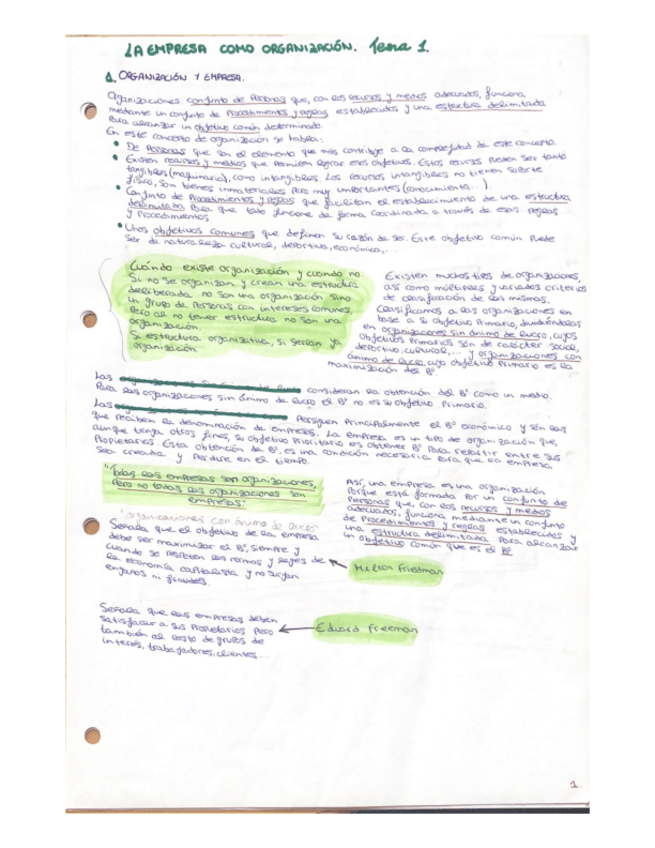 LA EMPRESA COMO ORGANIZACIÓN. Tema 1.
1. ORGANIZACIÓN Y EMPRESA.
Organizaciones conjunto de Personas que, con los recursos y medios adecuados, funciona
mediante un conjunto de Procedimientos y reglas establecidos y una estructura delimitada
Para alcanzar un objetivo común determinado.
En este concepto de organización se habla:
• De Personas que son el elemento que más contribuye a la complejidad de este concepto.
• Existen recursos y medios que Permiten lograr esos objetivos. Estos recursos Pueden ser tanto
tangibles (maquinaria), como intangibles. Los recursos intangibles no tienen soporte
físico, son bienes inmateriales Pero muy importantes (conocimiento...)
• Conjunto de Procedimientos y reglas que facilitan el establecimiento de una estructura
delimitada Para que todo funcione de forma coordinada a través de esas reglas
y Procedimientos.
• Unos objetivos comunes que definen su razón de ser. Este objetivo común Puede
ser de naturaleza cultural, deportiva, económica,...
Cuándo existe organización y cuando no
Si no se organizan y crean una estructura
deliberada no son una organización sino
un grupo de Personas con intereses comunes,
Pero al no tener estructura no son una
organización.
Si estructura organizativa, si serían ya
organización.
Existen muchos tipos de organizaciones,
así como múltiples y variados criterios
de clasificación de las mismas.
Clasificamos a las organizaciones en
base a su objetivo Primario, dividiéndolas
en organizaciones sin ánimo de lucro, cuyos
objetivos Primarios son de carácter social,
deportivo, cultural,... y organizaciones con
ánimo de lucro, cuyo objetivo Primario es la
maximización del Bº
Las consideran la obtención del Bº como un medio.
Para las organizaciones sin ánimo de lucro el Bº no es su objetivo Primario.
Las Persiguen Principalmente el Bº económico y son las
que reciben la denominación de empresas. La empresa es un tipo de organización que,
aunque tenga otros fines, su objetivo Prioritario es obtener Bº Para repartir entre sus
Propietarios. Esta obtención de Bº, es una condición necesaria Para que la empresa
sea creada y Perdure en el tiempo.
"Todas las empresas son organizaciones,
Pero no todas las organizaciones son
empresas"
"organizaciones con ánimo de lucro"
Señala que el objetivo de la empresa
debe ser maximizar el Bº, siempre y
cuando se respeten las normas y leyes de
la economía capitalista y no surjan
engaños ni fraudes.
Milton Friedman
Así, una empresa es una organización
Porque está formada Por un conjunto de
Personas que, con los recursos y medios
adecuados, funciona mediante un conjunto
de Procedimientos y reglas establecidos y
una estructura delimitada Para alcanzar
un objetivo común que es el Bº
Señala que las empresas deben
satisfacer a sus Propietarios Pero
también al resto de grupos de
interés, trabajadores, clientes...
Eduard Freeman
1.